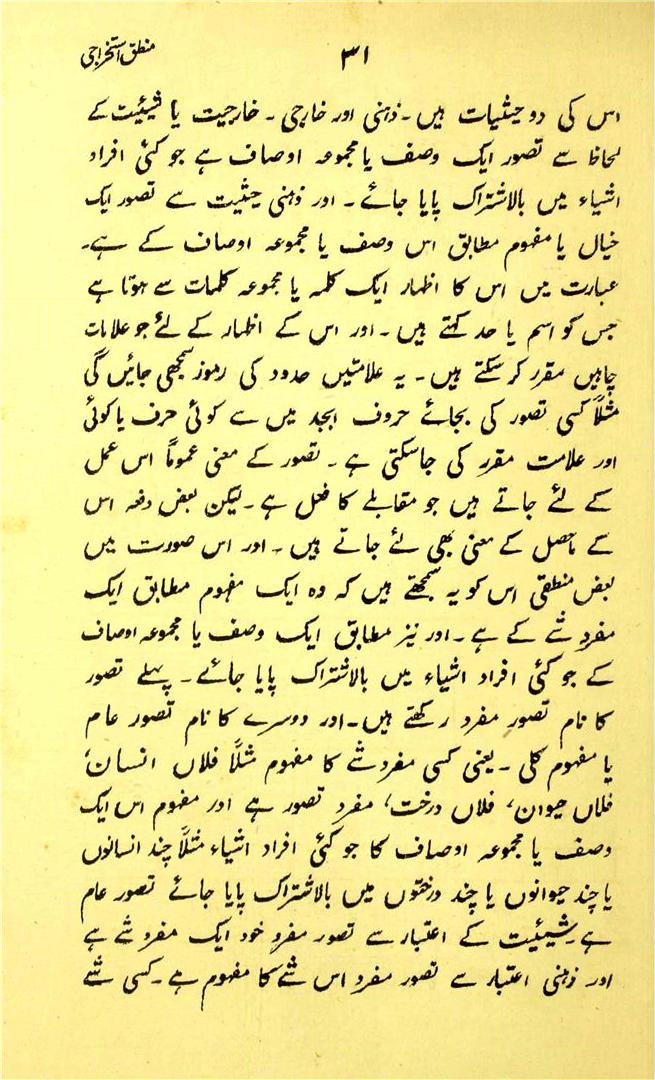 منطق استخراجی
۳۱
اس کی دو حیثیات ہیں۔ ذہنی اور خارجی۔ خارجیت یا شیئیت کے
لحاظ سے تصور ایک وصف یا مجموعہ اوصاف ہے جو کئی افراد
اشیاء میں بالاشتراک پایا جائے۔ اور ذہنی حیثیت سے تصور ایک
خیال یا مفہوم مطابق اس وصف یا مجموعہ اوصاف کے ہے۔
عبارت میں اس کا اظہار ایک کلمہ یا مجموعہ کلمات سے ہوتا ہے
جس کو اسم یا حد کہتے ہیں۔ اور اس کے اظہار کے لئے جو علامات
چاہیں مقرر کر سکتے ہیں۔ یہ علامتیں حدود کی رموز سمجھی جائیں گی
مثلاً کسی تصور کی بجائے حروف ابجد میں سے کوئی حرف یا کوئی
اور علامت مقرر کی جاسکتی ہے۔ تصور کے معنی عموماً اس عمل
کے لئے جاتے ہیں جو مقابلے کا فعل ہے۔ لیکن بعض دفعہ اس
کے ماحصل کے معنی بھی لئے جاتے ہیں۔ اور اس صورت میں
بعض منطقی اس کو یہ سمجھتے ہیں کہ وہ ایک مفہوم مطابق ایک
مفرد شے کے ہے۔ اور نیز مطابق ایک وصف یا مجموعہ اوصاف
کے جو کئی افراد اشیاء میں بالاشتراک پایا جائے۔ پہلے تصور
کا نام تصور مفرد رکھتے ہیں۔ اور دوسرے کا نام تصور عام
یا مفہوم کلی۔ یعنی کسی مفرد شے کا مفہوم مثلاً فلاں انسان،
فلاں حیوان، فلاں درخت، مفرد تصور ہے اور مفہوم اس ایک
وصف یا مجموعہ اوصاف کا جو کئی افراد اشیاء مثلاً چند انسانوں
یا چند حیوانوں یا چند درختوں میں بالاشتراک پایا جائے تصور عام
ہے۔ شیئیت کے اعتبار سے تصور مفرد خود ایک مفرد شے ہے
اور ذہنی اعتبار سے تصور مفرد اس شے کا مفہوم ہے۔ کسی شے